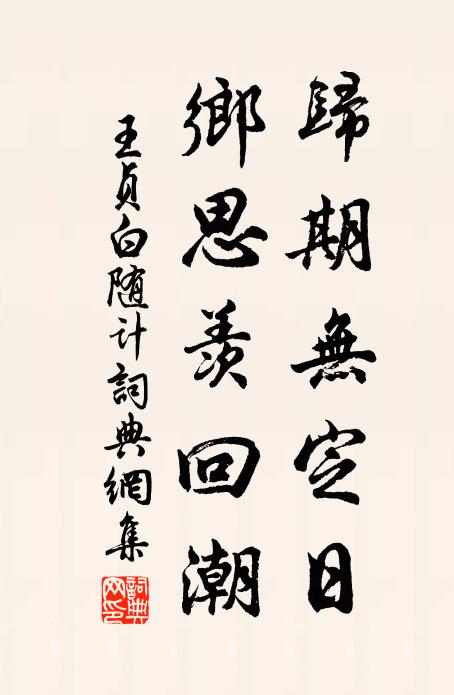 歸期無定日
鄉思羨回潮
王貞白随计詞典網集
詞典網印